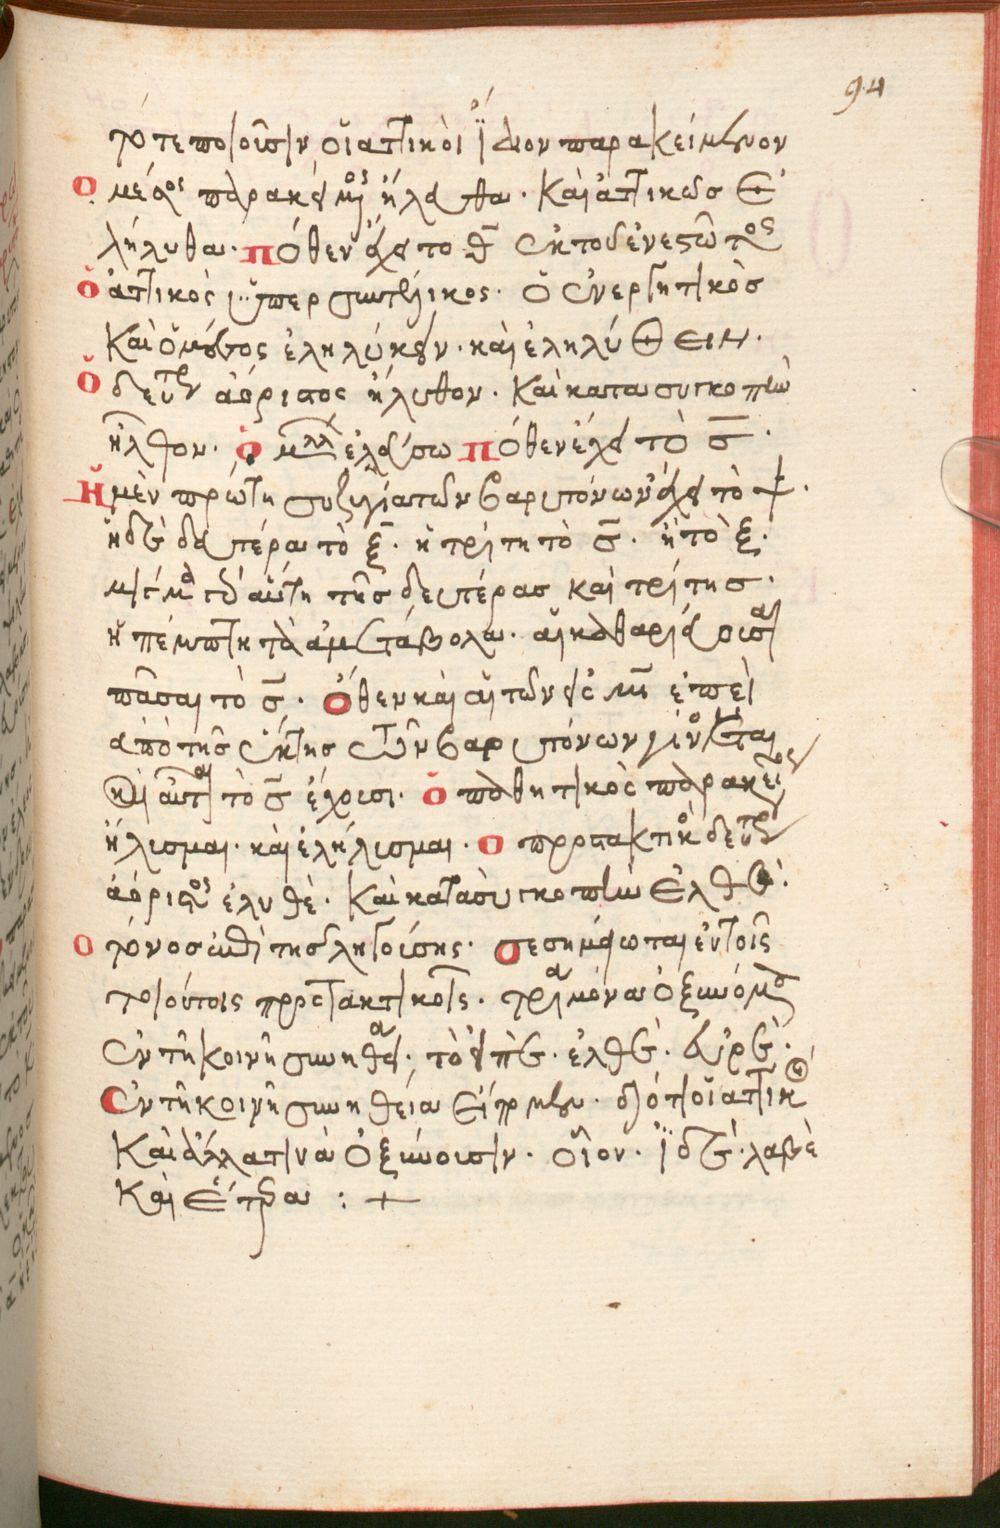 94
τότε ποιοῦσιν οἱ ἀττικοὶ ἴδιον παρακείμενον
Ὁ μέσος παρακείμενος ἤλευθα· καὶ ἀττικῶς ἐ
λήλυθα· πόθεν ἔχει τὸ θ ἐκ τοῦ ἐνεστῶτος
Ὁ ἀττικὸς ὑπερσυντέλικος· ὁ ἐνεργητικὸς
καὶ ὁ μέσος ἐληλύκειν· καὶ ἐληλύθειν·
Ὁ δεύτερος ἀόριστος ἤλυθον· καὶ κατὰ συγκοπὴν
ἦλθον· ὁ μέλλων ἐλεύσω πόθεν ἔχει τὸ σ·
Ἡ μὲν πρώτη συζυγία τῶν βαρυτόνων ἔχει τὸ ψ·
ἡ δὲ δευτέρα τὸ ξ· ἡ τρίτη τὸ σ· ἢ τὸ ξ·
ἡ πέμπτη τὰ ἀμετάβολα· αἱ καθαρεύουσαι
πᾶσαι τὸ σ· ὅθεν καὶ αἱ τῶν εἰς μι ἐπεὶ
ἀπὸ τῆς ἕκτης τῶν βαρυτόνων γίνονται
καὶ αὗται τὸ σ ἔχουσι· ὁ παθητικὸς παρακείμενος
ἤλισμαι· καὶ ἐλήλισμαι· ὁ προστακτικὸς δεύτερος
ἀόριστος ἐλυθέ· καὶ κατὰ συγκοπὴν ἐλθέ·
Ὁ τόνος ἐπὶ τῆς ληγούσης· σεσημείωται ἐν τοῖς
τοιούτοις προστακτικοῖς· τρία μόνα ὀξυνόμενα
ἐν τῇ κοινῇ συνηθείᾳ· τὸ εἰπέ· ἐλθέ· εὑρέ·
ἐν τῇ κοινῇ συνηθείᾳ εἴπομεν· διότι οἱ ἀττικοὶ
καὶ ἄλλα τινὰ ὀξύνουσιν· οἷον· ἰδέ· λαβὲ
καὶ ἕτερα : +